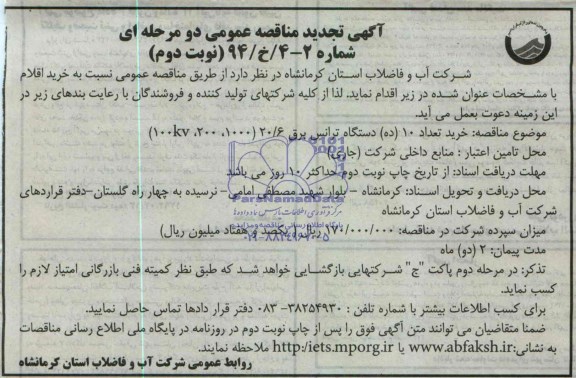 آگهی تجدید مناقصه عمومی دو مرحله ای
شماره ۲-۴/خ/۹۴ (نوبت دوم)
شرکت آب و فاضلاب استان کرمانشاه در نظر دارد از طریق مناقصه عمومی نسبت به خرید اقلام
با مشخصات عنوان شده در زیر اقدام نماید. لذا از کلیه شرکتهای تولید کننده و فروشندگان با رعایت بندهای زیر در
این زمینه دعوت بعمل می آید.
موضوع مناقصه: خرید تعداد ۱۰ (ده) دستگاه ترانس برق ۲۰/۶ (۱۰۰۰، ۲۰۰، ۱۰۰kv)
محل تامین اعتبار : منابع داخلی شرکت (جاری)
مهلت دریافت اسناد: از تاریخ چاپ نوبت دوم حداکثر ۱۰ روز می باشد
محل دریافت و تحویل اسناد: کرمانشاه - بلوار شهید مصطفی امامی - نرسیده به چهار راه گلستان-دفتر قراردهای
شرکت آب و فاضلاب استان کرمانشاه
میزان سپرده شرکت در مناقصه: ۱۷۰/۰۰۰/۰۰۰ ریال (یکصد و هفتاد میلیون ریال)
مدت پیمان: ۲ (دو) ماه
تذکر: در مرحله دوم پاکت "ج" شرکتهایی بازگشایی خواهد شد که طبق نظر کمیته فنی بازرگانی امتیاز لازم را
کسب نماید.
برای کسب اطلاعات بیشتر با شماره تلفن : ۳۸۲۵۴۹۳۰-۰۸۳ دفتر قرار دادها تماس حاصل نمایید.
ضمنا متقاضیان می توانند متن آگهی فوق را پس از چاپ نوبت دوم در روزنامه در پایگاه ملی اطلاع رسانی مناقصات
به نشانی:www.abfaksh.ir یا http:/iets.mporg.ir ملاحظه نمایند.
روابط عمومی شرکت آب و فاضلاب استان کرمانشاه
ParsNamadData